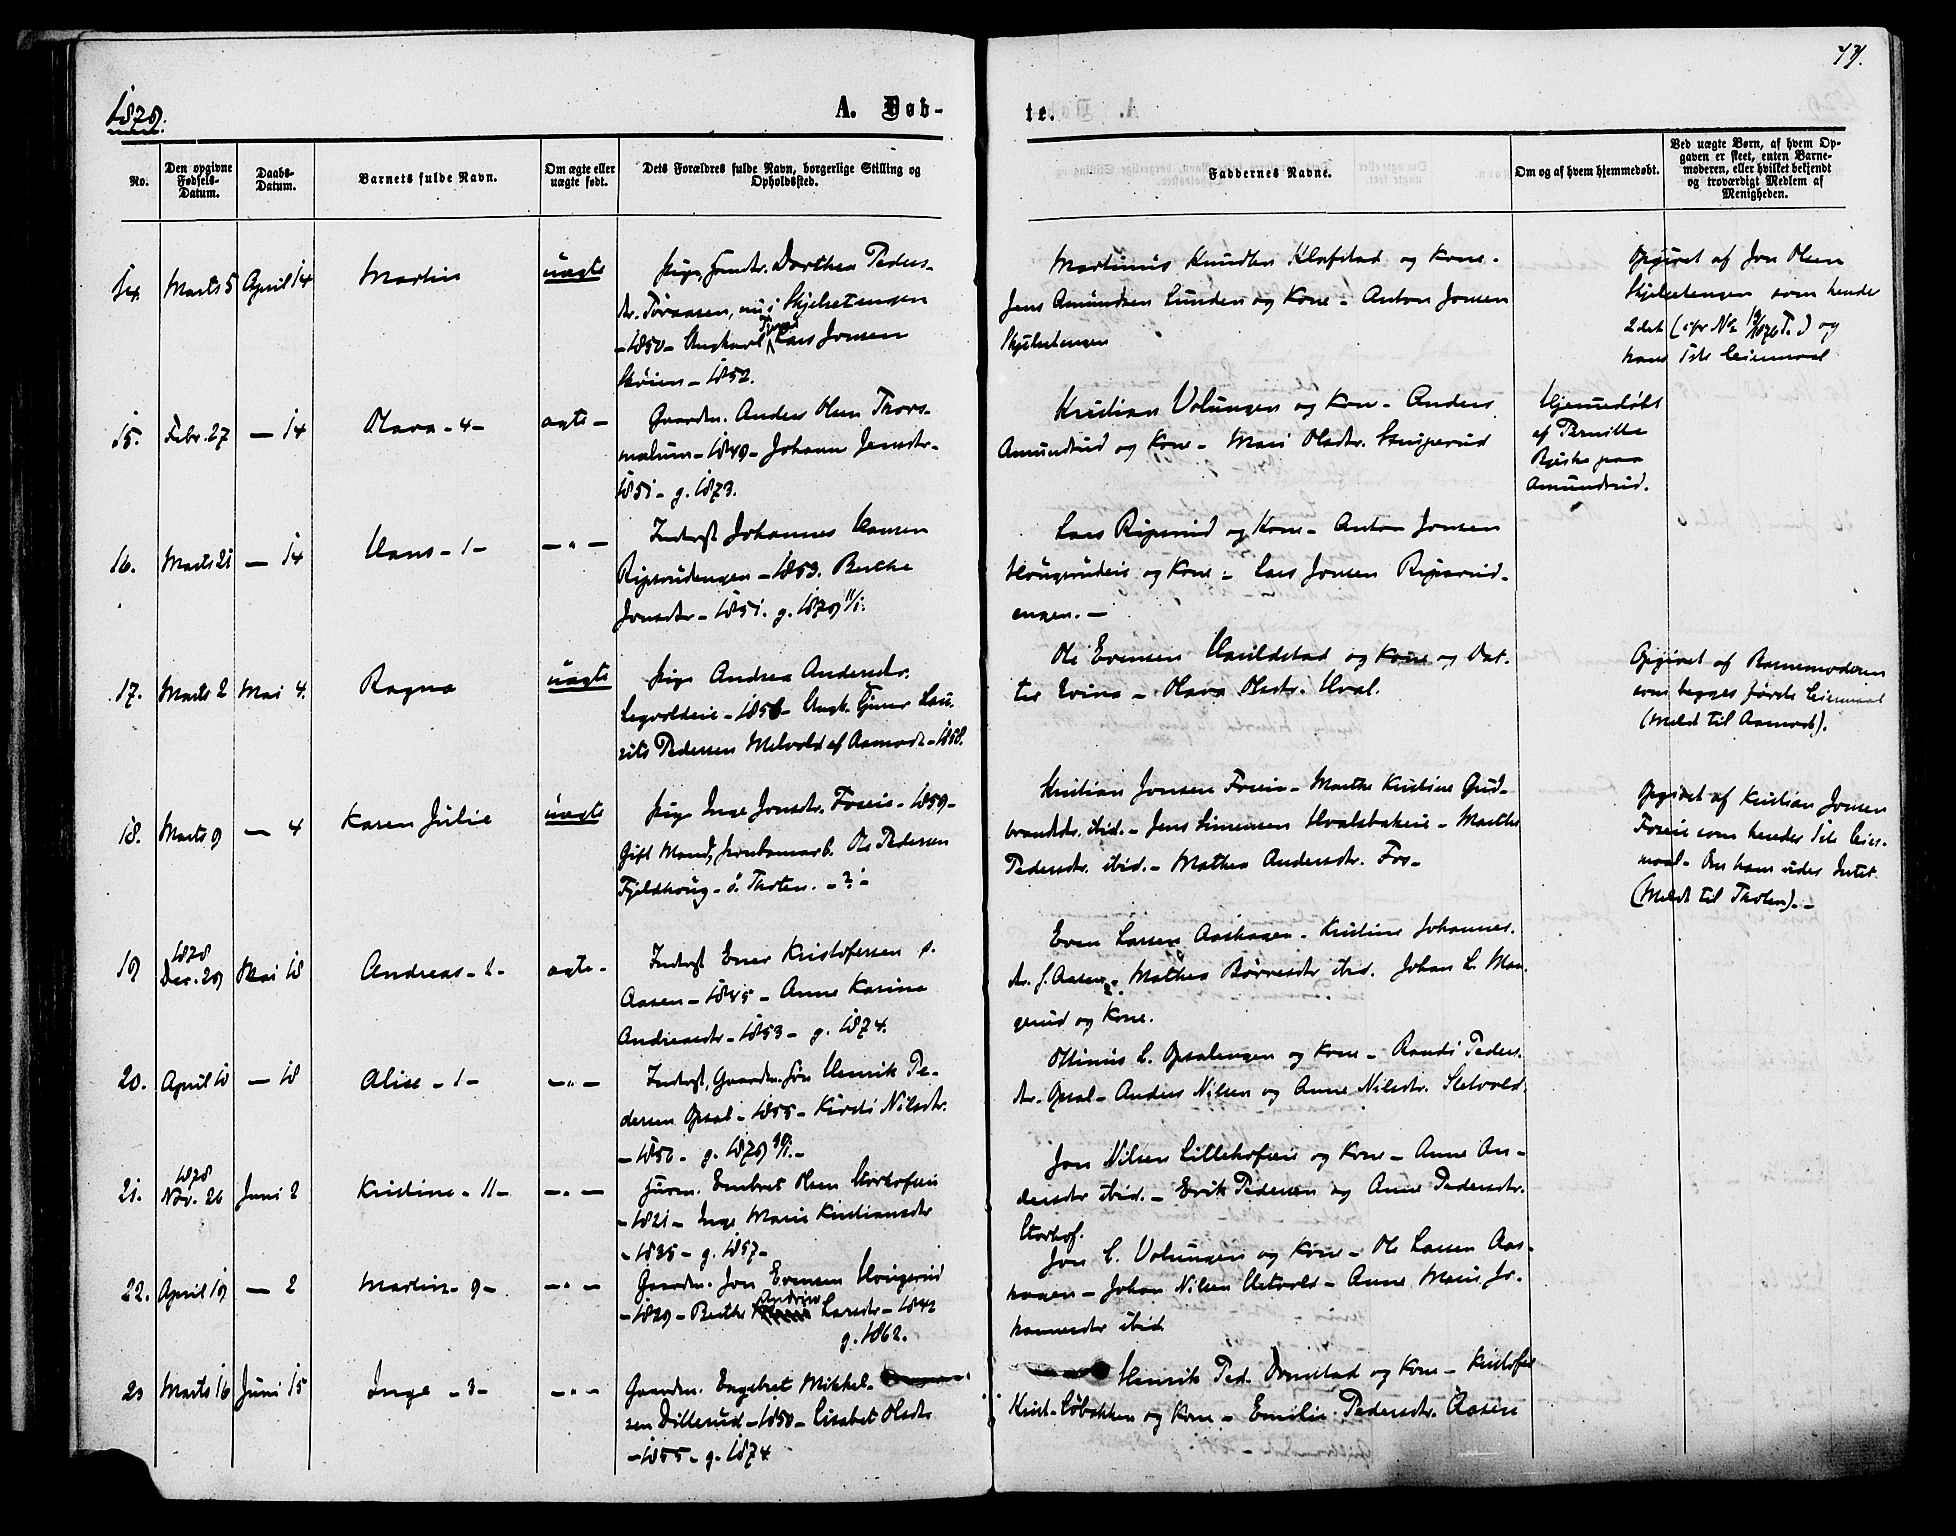 1879.
A. Døb-
te.
No.
Den opgivne Fødsels-Datum.
Daabs-Datum.
Barnets fulde Navn.
Om ægte eller uægte født.
Dets Forældres fulde Navn, borgerlige Stilling og Opholdssted.
Faddernes Navne.
Om og af hvem hjemmedøbt.
Ved uægte Børn, af hvem Op-
gaven er skeet, enten Barne-
moderen, eller hvilket bekjendt
og troværdigt Medlem af
Menigheden.
14. Marts 5 April 14 Martin uægte
Pige, Dorthea Peders-
dr. nu i Skjelsetengen
-1850- Ungkarl Lars Jonsen
Sköien - 1852.
Martinius Knudsen Klafstad og Kone -
Jens Amundsen Lunden og Kone - Anton Jonsen
Skjelsetengen
Opgivet af Jon Olsen
Skjelsetengen som hendes
2det og
hans 1ste Leiermaal
15. Febr. 27 - 14 Olava - 4 - ægte -
Gaardm. Anders Olsen Thors-
mælum - 1849 - Johanne Jensdtr -
1851 - g. 1873.
Kristian Volungen og Kone - Anders
Amundrud og Kone - Mari Olsdtr. Snigerud
Hjemmedøbt
af Pernille
paa
Amundrud.
16. Marts 21 - 14 Hans - 1 - - " -
Inderst Johannes Hansen
Ripsrudengen - 1853. Berthe
Jonsdtr - 1851. g. 1879 11/1.
Lars Ripsrud og Kone - Anton Jonsen
Hougsrudeie og Kone - Lars Jonsen Ripsrud-
engen. -
17. Marts 2 Mai 4. Ragna uægte
Pige Andrea Andersdtr.
Legvoldeie - 1856 - Ungk. Tjener Lau-
rits Pedersen Melvold af Aamodt - 1858.
Ole Evensen Haraldstad og Kone og Dat-
ter Evina - Olava Olsdtr. Hval.
Opgivet af Barnemoderen
som begges første Leiermaal
(Meldt til Aamodt).
18. Marts 9 - 4 Karen Julie uægte
Pige Inge Jonsdtr. Foseie - 1859 -
Gift Mand, Jernbanearb. Ole Pedersen
Fjeldhoug - ö. Thoten. - ? -
Kristian Jonsen Foseie - Marthe Kristine Gud-
brandsdtr. ibid. - Jens Simensen Hvalsbakeie - Marthe
Pedersdtr. ibid. - Mathea Andersdtr. Fos -
Opgivet af Kristian Jonsen
Foseie som hendes 1ste Leier-
maal - Om ham vides Intet
(Meldt til Thoten). -
19 1878 Dec. 29 Mai 18 Andreas - 2 - ægte -
Inderst Ener Kristofersen s.
Aasen - 1845 - Anne Karine
Andreasdtr - 1853 - g. 1874.
Even Larsen Aashagen - Kristine Johannes-
dtr. s. Aasen - Mathea Börresdtr ibid. Johan L. Mon-
gerud og Kone.
20. April 10 - 18 Alise - 1 - - " -
Inderst, Gaardm. Søn Henrik Pe-
dersen Opsal - 1855 - Kirsti Nilsdtr.
- 1850 - g. 1879
Ottinius L. Opsalengen og Kone - Randi Peders-
dtr. Opsal - Anders Nilsen og Anne Nilsdtr. Sletvold
21. 1878 Nov. 26 Juni 2 Kristine - 11 - - " -
Huusm. Embret Olsen Storhofeie
- 1821 - Inge Marie Kristiansdtr
- 1835 - g. 1857 -
Jon Nilsen Lillehofeie og Kone - Anne An-
dersdtr ibid. - Erik Pedersen og Anne Pedersdtr.
Storhof.
22. April 19 - 2 Martin - 9 - - " -
Gaardm. Jon Evensen Hougsrud
- 1829 - Berthe Andrine Larsdtr - 1842
g. 1862.
Jon L. Volungen og Kone - Ole Larsen Aas-
haagen - Johan Nilsen Sletvold - Anne Marie Jo-
hannesdtr ibid
23 Marts 16 Juni 15 Inge - 3 - - " -
Gaardm. Engebret Mikkel-
sen Dillerud - 1850 - Lisabet Olsdtr
- 1855 - g. 1874
Henrik Ped. Ornestad og Kone - Kristofer
Krist. Löbakken og Kone - Emilie Pedersdtr. Aasen